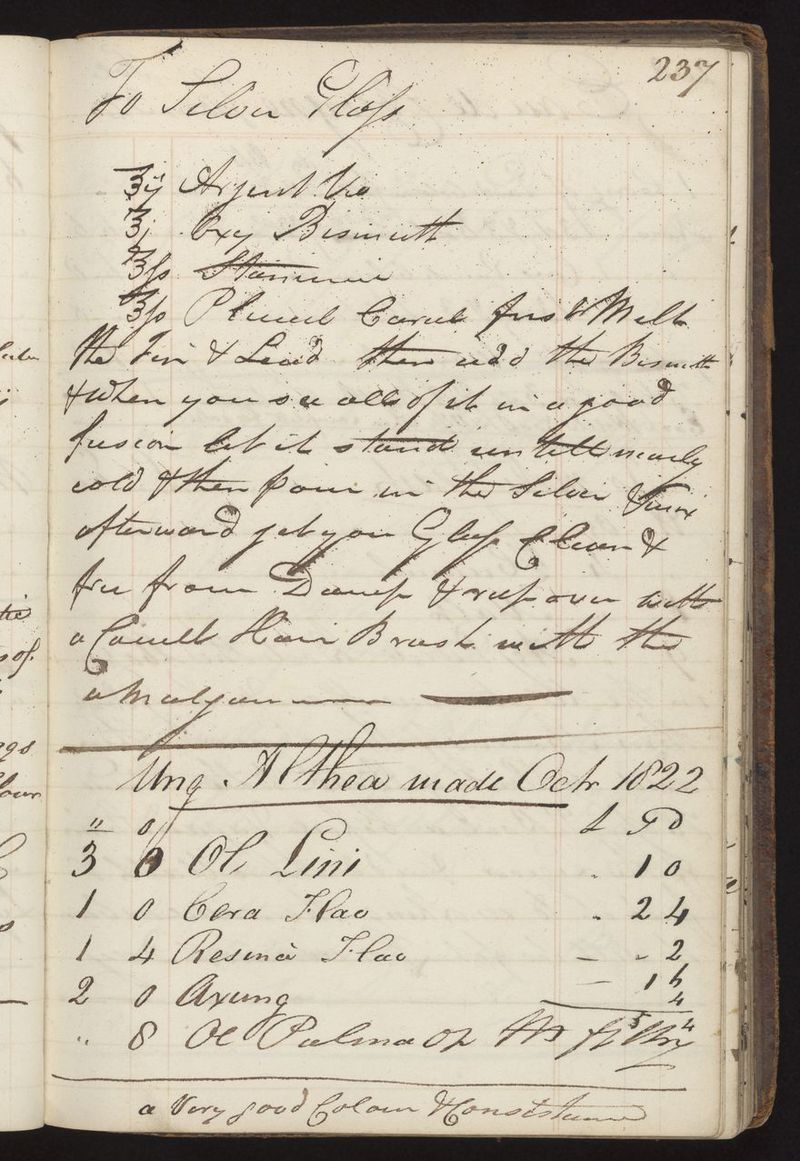 237
To Silver Glass
℥ij Argent Viv
℥j Oxy Bismuth
℥ss Stannum
℥ss Plumb first Melt
the Tin & Lead then add the Bismuth
& When you see all of it in a good
fusion let it stand untill nearly
cold & then pour in the Silver
afterward get your Glass Clean &
free from Damp & rub over with
a Camell Hair Brush with the
amalgam
Ung. Althea made Octr 1822
3 0 Ol Lini " 1 0
1 0 Cera Flav " 2 4
1 4 Resina Flav – " 2
2 0 Axung – 1 6
" 8 Ol Palma 4
5 4
a Very good Colour & Consistance